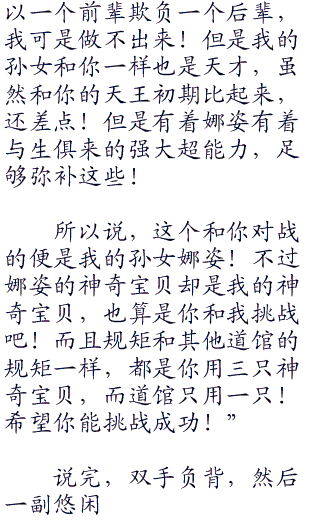 以一个前辈欺负一个后辈，
我可是做不出来！但是我的
孙女和你一样也是天才，虽
然和你的天王初期比起来，
还差点！但是有着娜姿有着
与生俱来的强大超能力，足
够弥补这些！
所以说，这个和你对战
的便是我的孙女娜姿！不过
娜姿的神奇宝贝却是我的神
奇宝贝，也算是你和我挑战
吧！而且规矩和其他道馆的
规矩一样，都是你用三只神
奇宝贝，而道馆只用一只！
希望你能挑战成功！”
说完，双手负背，然后
一副悠闲